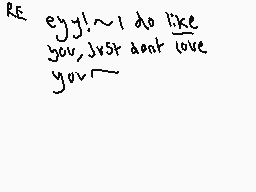 RE
eyy!~I do like
you, jrst dont love
you~